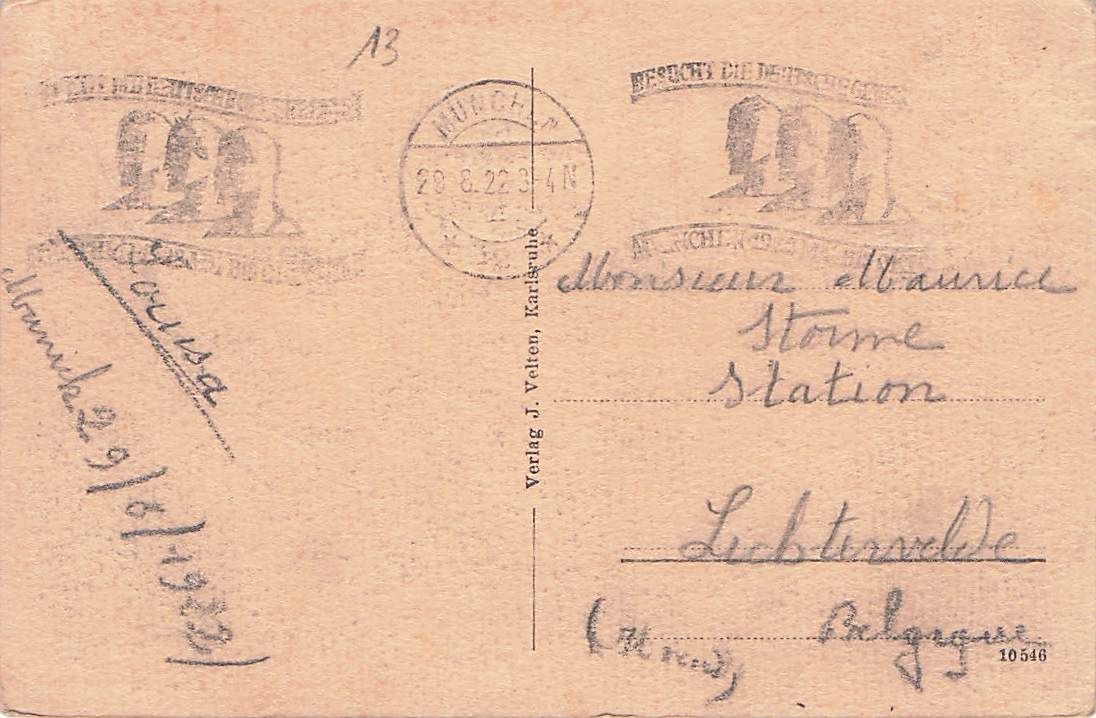 13
BESUCHT DIE DEUTSCHE GEWERBESCHAU
MÜNCHEN 1922
MÜNCHEN
29.8.22 3-4 N
BESUCHT DIE DEUTSCHE
MÜNCHEN 1922
Louisa
Munich 29/8/1922
Verlag J. Velten, Karlsruhe
Monsieur Maurice
Storme
Station
Lichtervelde
Belgique
10546